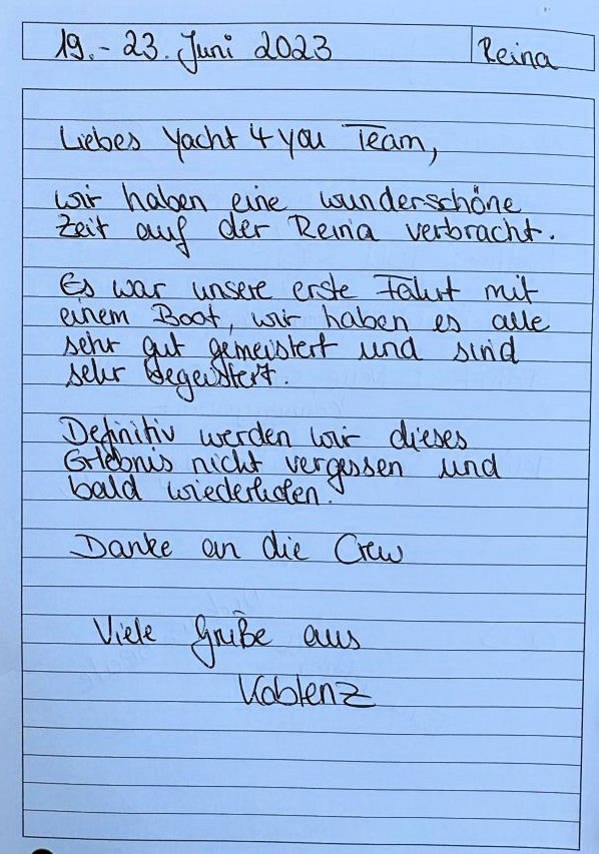 19.-23. Juni 2023
Reina
Liebes Yacht 4 you Team,
wir haben eine wunderschöne
Zeit auf der Reina verbracht.
Es war unsere erste Fahrt mit
einem Boot, wir haben es alle
sehr gut gemeistert und sind
sehr begeistert.
Definitiv werden wir dieses
Erlebnis nicht vergessen und
bald wiederholen.
Danke an die Crew
Viele Grüße aus
Koblenz